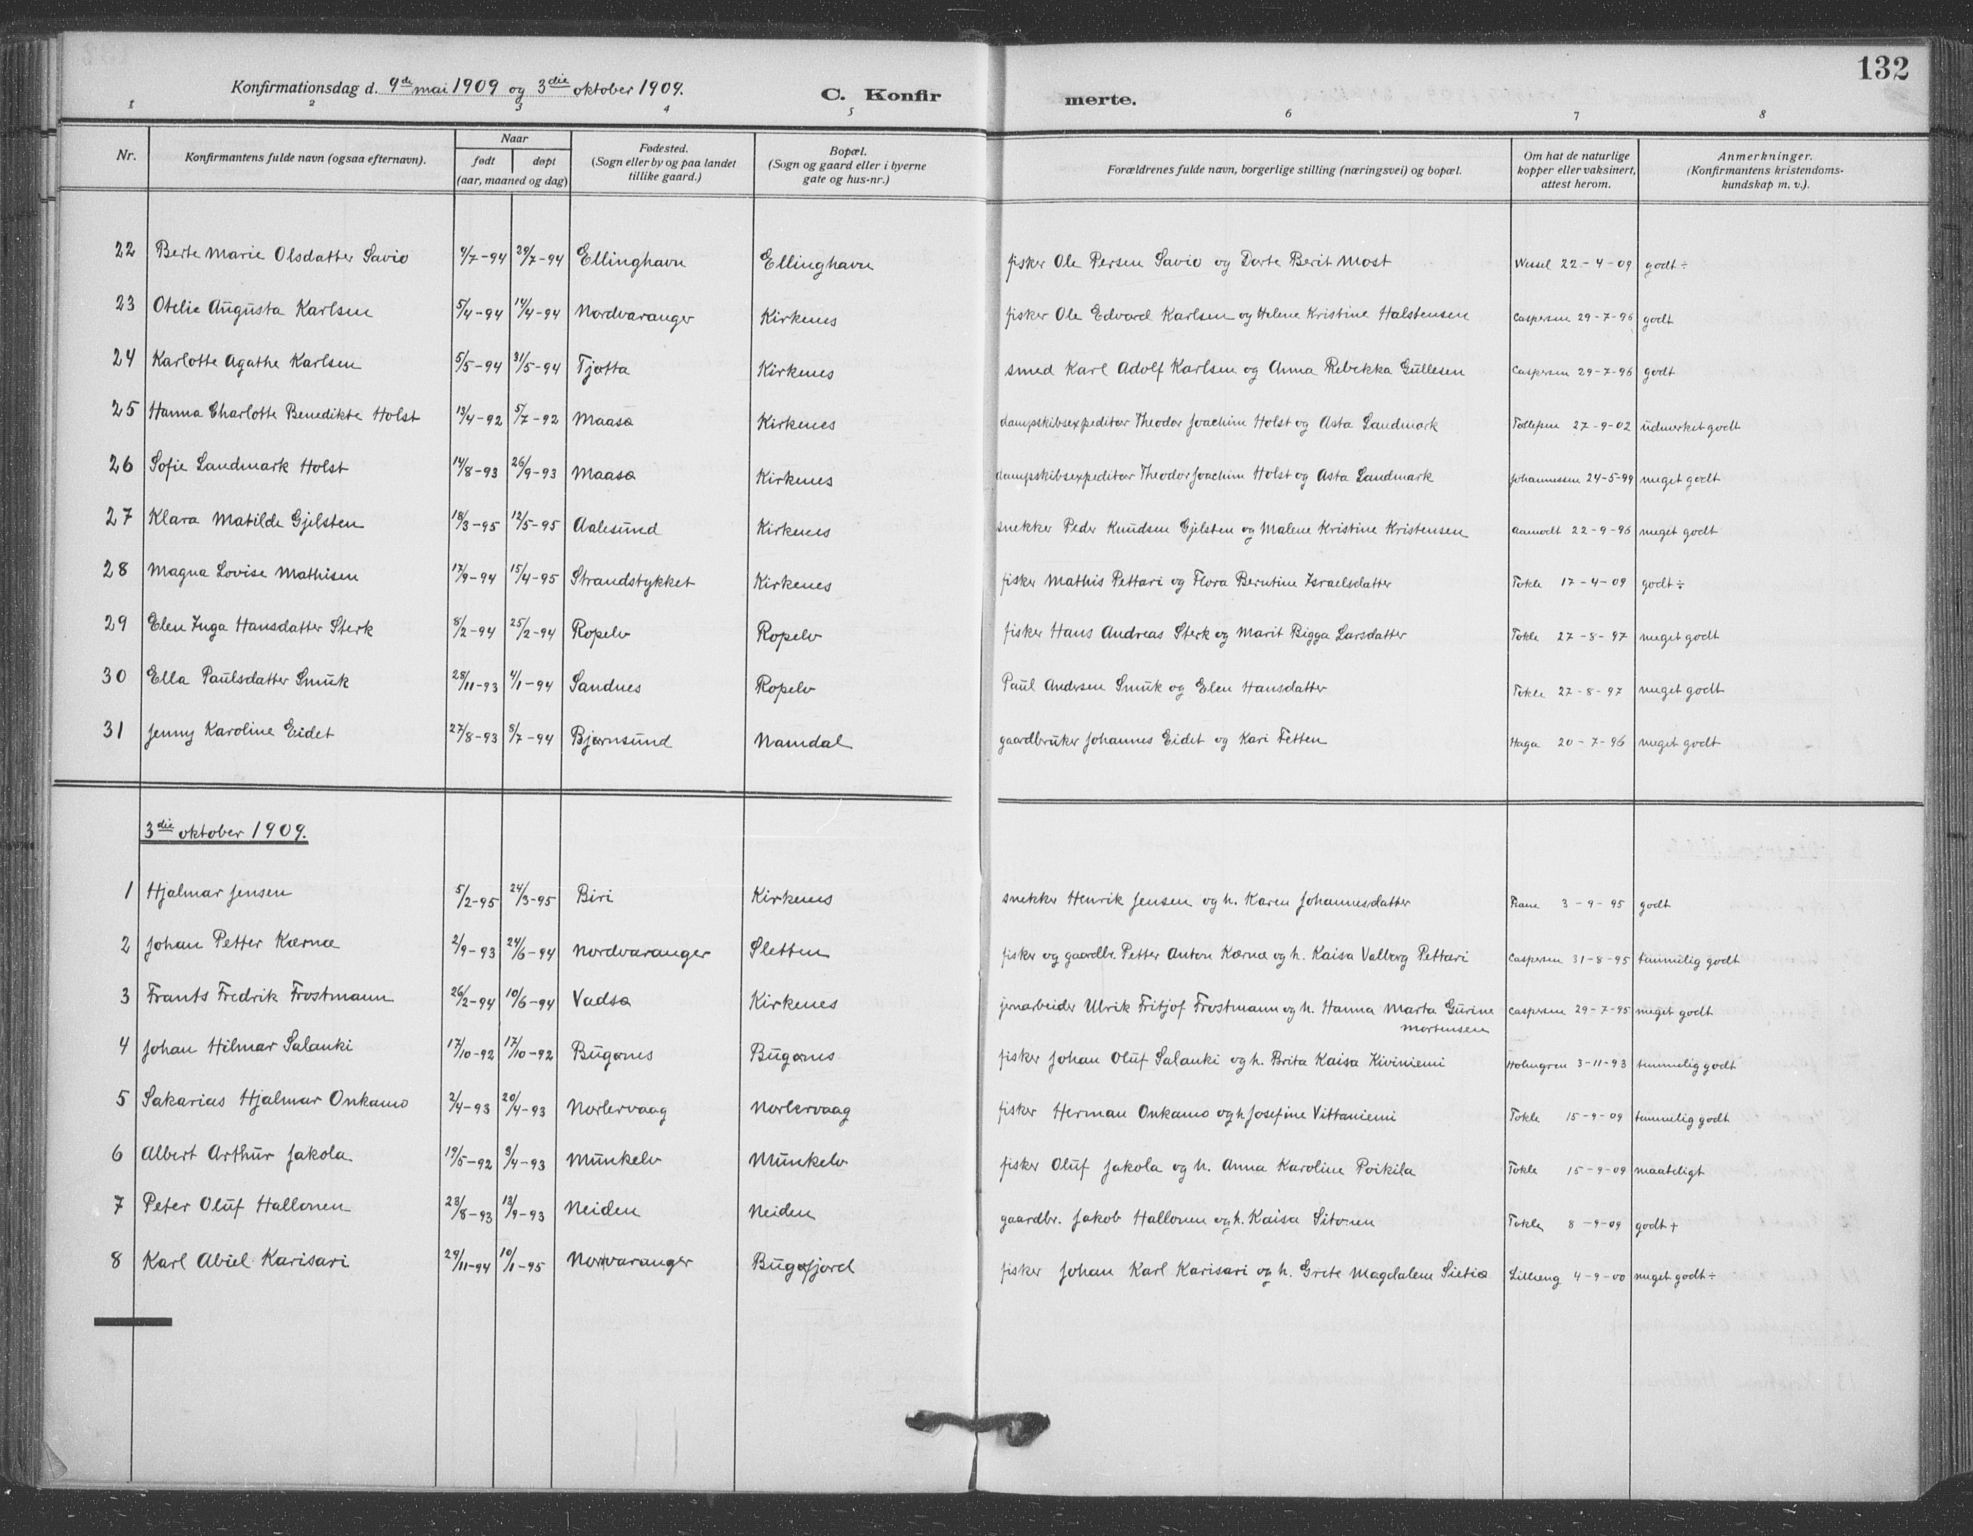 132
Konfirmationsdag d. 9de mai 1909 og 3die oktober 1909. C. Konfirmerte.
1 2 3 4 5 6 7 8
Nr. Konfirmantens fulde navn (ogsaa efternavn). Naar født døpt (aar, maaned og dag) Fødested. (Sogn eller by og paa landet tillike gaard.) Bopæl. (Sogn og gaard eller i byerne gate og hus-nr.) Forældrenes fulde navn, borgerlige stilling (næringsvei) og bopæl. Om hat de naturlige kopper eller vaksinert, attest herom. Anmerkninger. (Konfirmantens kristendoms-kundskap m. v.).
22 Berte Marie Olsdatter Savio 9/7-94 29/7-94 Ellinghavn Ellinghavn fisker Ole Persen Savio og Dorte Berit Most Wessel 22-4-09 godt ÷
23 Otelie Augusta Karlsen 5/4-94 14/4-94 Nordvaranger Kirkenes fisker Ole Edvard Karlsen og Helene Kristine Halstensen Caspersen 29-7-96 godt
24 Karlotte Agathe Karlsen 5/5-94 31/5-94 Tjøtta Kirkenes smed Karl Adolf Karlsen og Anna Rebekka Gullesen Caspersen 29-7-96 godt
25 Hanna Charlotte Benedikte Holst 13/4-92 5/7-92 Maasø Kirkenes dampskibsexpeditør Theodor Joachim Holst og Asta Landmark Tollefsen 27-9-02 udmerket godt
26 Sofie Landmark Holst 14/8-93 26/9-93 Maasø Kirkenes dampskibsexpeditør Theodor Joachim Holst og Asta Landmark Johannessen 24-5-99 meget godt
27 Klara Matilde Gjelsten 18/3-95 12/5-95 Aalesund Kirkenes snekker Peder Knudsen Gjelsten og Malene Kristine Kristensen 22-9-96 meget godt
28 Magna Lovise Mathisen 17/9-94 15/4-95 Strandstykket Kirkenes fisker Mathis Pettari og Flora Berntine Israelsdatter Tokle 17-4-09 godt ÷
29 Elen Inga Hansdatter Sterk 8/2-94 25/2-94 Ropelv Ropelv fisker Hans Andreas Sterk og Marit Bigga Larsdatter Tokle 27-8-97 meget godt
30 Ella Paulsdatter Smuk 28/11-93 4/1-94 Sandnes Ropelv Paul Andersen Smuk og Elen Hansdatter Tokle 27-8-97 meget godt
31 Jenny Karoline Eidet 27/8-93 8/7-94 Bjørnsund Namdal gaardbruker Johannes Eidet og Kari Fetten Haga 20-7-96 meget godt
3die oktober 1909.
1 Hjalmar Jensen 5/2-95 24/3-95 Biri Kirkenes snekker Henrik Jensen og h. Karen Johannesdatter 3-9-95 godt
2 Johan Petter Kærnæ 2/9-93 24/6-94 Nordvaranger Sletten fisker og gaardbr. Petter Anton Kærnæ og h. Kaisa Valborg Pettari Caspersen 31-8-95 temmelig godt
3 Frants Fredrik Frostmann 26/2-94 10/6-94 Vadsø Kirkenes jernarbeider Ulrik Fritjof Frostmann og h. Hanna Marta Gurine Caspersen 29-7-95 meget godt
Mortensen
4 Johan Hilmar Salanki 17/10-92 17/10-92 Bugønes Bugønes fisker Johan Oluf Salanki og h. Brita Kaisa Kiviniemi Holmgren 3-11-93 temmelig godt
5 Sakarias Hjalmar Onkamo 2/4-93 20/4-93 Norlervaag Norlervaag fisker Herman Onkamo og h Josefine Vittaniemi Tokle 15-9-09 temmelig godt
6 Albert Arthur Jakola 19/5-92 3/4-93 Munkelv Munkelv fisker Oluf Jakola og h. Anna Karoline Poikila Tokle 15-9-09 maateligt
7 Peter Oluf Hallonen 23/8-93 13/9-93 Neiden Neiden gaardbr. Jakob Hallonen og h. Kaisa Sitonen Tokle 8-9-09 godt +
8 Karl Abiel Karisari 29/11-94 10/1-95 Norvaranger Bugøfjord fisker Johan Karl Karisari og h. Grete Magdalene Sietiø Lilleeng 4-9-00 meget godt ÷